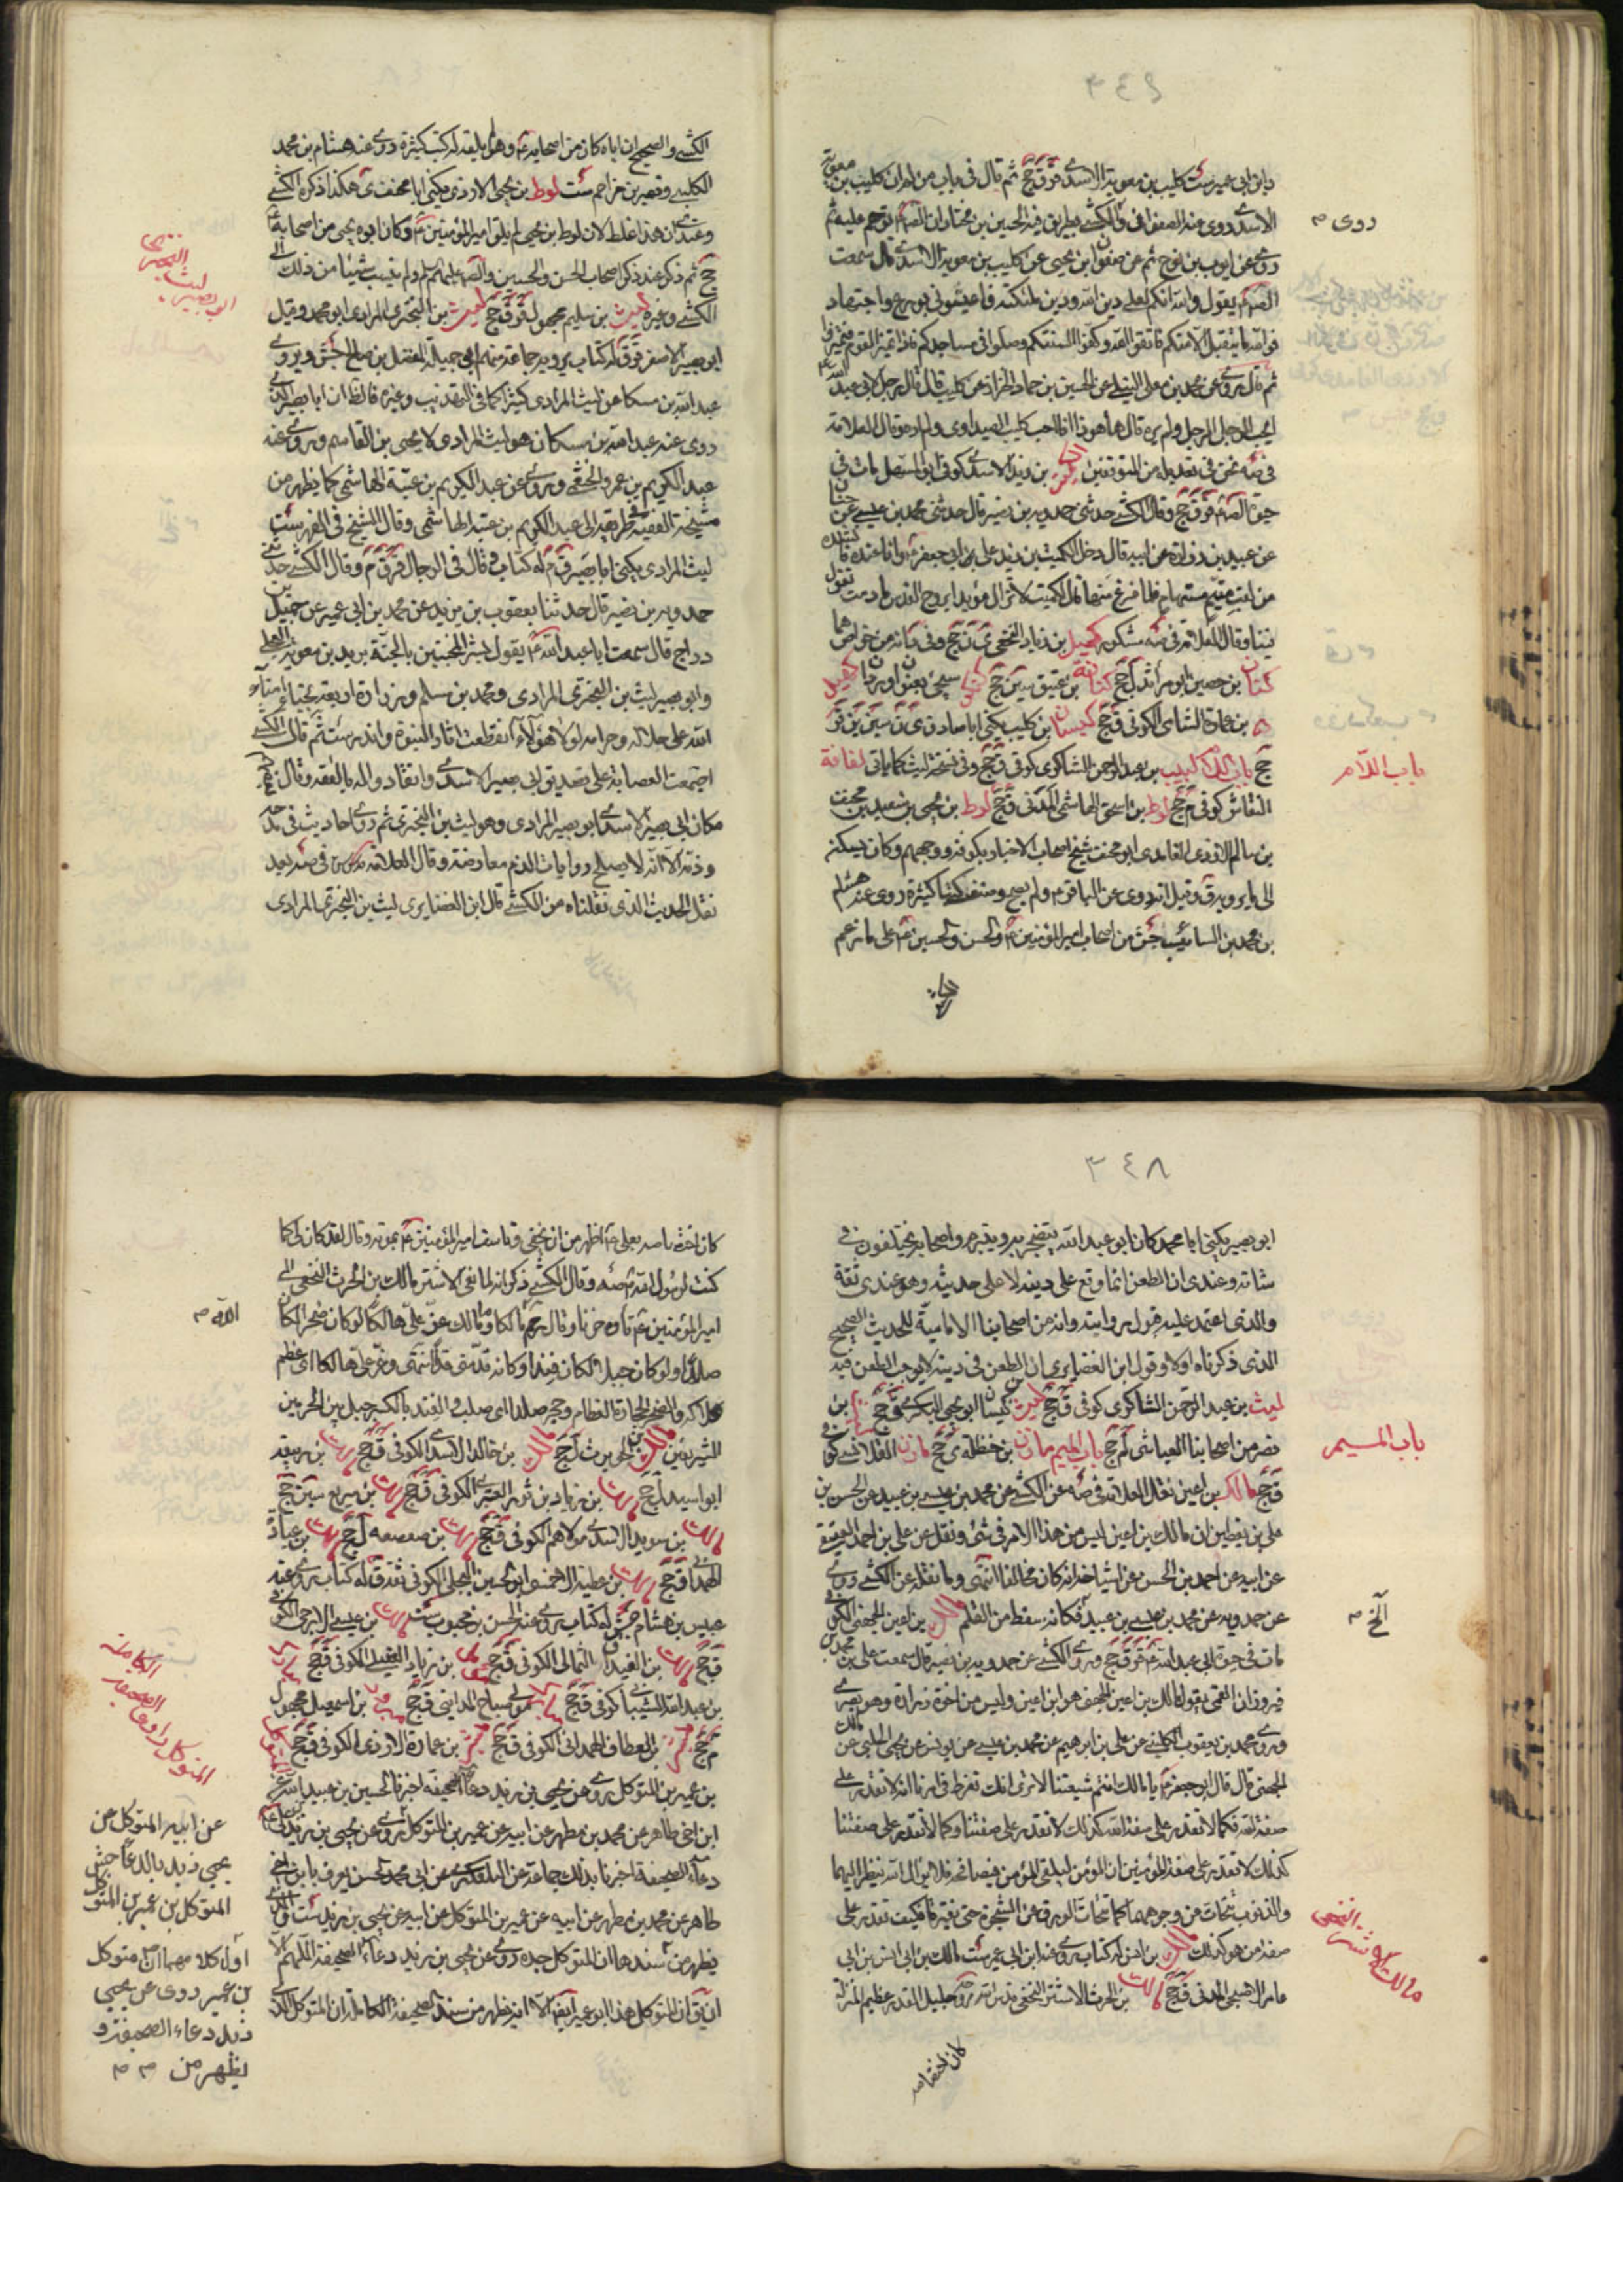 ٣٤٩
وابن ابي عمير ست كليب بن معوية الاسدي ق ق جخ ثم قال في باب من لم كليب بن معوية
الاسدي روى عنه الصفواني والكشي بطريق فيه الحسين بن مختار ان الصم ترحم عليه ثم
روى عن ايوب بن نوح ثم عن صفوان بن يحيى عن كليب بن معوية الاسدي قال سمعت
الصم يقول والله انكم لعلي دين الله ودين ملئكته فاعينوني بورع واجتهاد
فوالله ما يتقبل الا منكم فاتقوا الله وكفوا السنتكم وصلوا في مساجدكم فاذا تميز القوم فتميزوا
ثم قال روى عن محمد بن معلى النيلي عن الحسين بن حماد الخزاز عن كليب قال قال رجل لابي عبد الله
ايحب الرجل الرجل ولم يره قال ها هوذا انا احب كليب الصيداوي ولم اره وقال العلامة
في صه نحن في تعديله من المتوقفين بن زيد الاسدي كوفي ابو المستهل مات في
حيوة الصم ق ق جخ وقال الكشي حدثني حمدويه بن نصير قال حدثني محمد بن عيسى عن حنان
عن عبيد بن زرارة عن ابيه قال دخل الكميت بن زيد على ابي جعفر وانا عنده فانشده
من لقلب متيم مستهام فلما فرغ منها قال للكميت لا تزال مؤيدا بروح القدس ما دمت تقول
فينا وقال العلامة في صه مشكور كميل بن زياد النخعي ي ن جخ وفي من خواصهما
كناز بن حصين ابو مرثد ل جخ كنانة بن عتيق سين جخ
بن عمارة الشامي الكوفي ق جخ كيسان بن كليب يكنى ابا صادق ي ن سين ين قر
جخ باب اللام لبيب بن عبد الرحمن الشاكري كوفي ق جخ وفي نسخة ليث كما ياتي لفافة
النقاش كوفي م جخ لوط بن اسحق الهاشمي المدني ق جخ لوط بن يحيى بن سعيد بن مخنف
بن سالم الازدي الغامدي ابو مخنف شيخ اصحاب الاخبار بكوفة ووجههم وكان يسكن
الى ما يرويه ق وقيل انه روى عن الباقر ولم يصح وصنف كتبا كثيرة روى عنه هشام
بن محمد بن السائب جش من اصحاب امير المؤمنين والحسن والحسين على ما زعم
روى م
باب اللام
الكشي والصحيح ان اباه كان من اصحابه وهو لم يلقه له كتب كثيرة روى عنه هشام بن محمد
الكلبي ونصر بن مزاحم ست لوط بن يحيى الازدي يكنى ابا مخنف ي هكذا ذكره الكشي
وعندي ان هذا غلط لان لوط بن يحيى لم يلق امير المؤمنين وكان ابوه يحيى من اصحابه
جخ ثم ذكر عند ذكر اصحاب الحسن والحسين والصم عليهم السلام ولم ينسب شيئا من ذلك الى
الكشي وغيره ليث بن سليم مجهول ق جخ ليث بن البختري المرادي ابو محمد وقيل
ابو بصير الاصغر ق ق له كتاب يرويه جماعة منهم ابو جميلة المفضل بن صالح جش ويروي
عبد الله بن مسكان عن ليث المرادي كثيرا كما في التهذيب وغيره فالظ ان ابا بصير الذي
روى عنه عبد الله بن مسكان هو ليث المرادي لا يحيى بن القاسم وروى عنه
عبد الكريم بن عمرو الخثعمي وروى عن عبد الكريم بن عتبة الهاشمي كما يظهر من
مشيخة الفقيه في طريقه الى عبد الكريم بن عتبة الهاشمي وقال الشيخ في الفهرست
ليث المرادي يكنى ابا بصير ق م له كتاب وقال في الرجال قر ق م وقال الكشي حدثني
حمدويه بن نصير قال حدثنا يعقوب بن يزيد عن محمد بن ابي عمير عن جميل بن
دراج قال سمعت ابا عبد الله يقول بشر المخبتين بالجنة بريد بن معوية العجلي
وابو بصير ليث بن البختري المرادي ومحمد بن مسلم وزرارة اربعة نجباء امناء
الله على حلاله وحرامه لولا هؤلاء انقطعت اثار النبوة واندرست ثم قال الكشي
اجتمعت العصابة على تصديق ابي بصير الاسدي وانقادوا له بالفقه وقال بعضهم
مكان ابي بصير الاسدي ابو بصير المرادي وهو ليث بن البختري ثم روى احاديث في مدحه
وذمه الا انه لا يصلح روايات الذم معارضة وقال العلامة في صه بعد
نقل الحديث الذي نقلناه من الكشي قال ابن الغضايري ليث بن البختري المرادي
ليث بن البختري
ابو بصير
٣٤٨
ابو بصير يكنى ابا محمد كان ابو عبد الله يتضجر به ويتبرم واصحابه يختلفون في
شانه وعندي ان الطعن انما وقع على دينه لا على حديثه وهو عندي ثقة
والذي اعتمد عليه قبول روايته وانه من اصحابنا الامامية للحديث الصحيح
الذي ذكرناه اولا وقول ابن الغضايري ان الطعن في دينه لا يوجب الطعن فيه
ليث بن عبد الرحمن الشاكري كوفي ق جخ ليث بن كيسان ابو يحيى البكري ق جخ بن
نصر من اصحابنا العياشي لم جخ باب الميم مازن بن حنظلة ي جخ مازن القلانسي كوفي
ق جخ مالك بن اعين نقل العلامة في صه عن الكشي عن محمد بن عيسى بن عبيد عن الحسن بن
علي بن يقطين ان مالك بن اعين ليس من هذا الامر في شئ ونقل عن علي بن احمد العقيقي
عن ابيه عن احمد بن الحسن عن اشياخه انه كان مخالفا انتهى وما نقله عن الكشي رواه
عن حمدويه عن محمد بن عيسى بن عبيد فكانه سقط من القلم مالك بن اعين الجهني الكوفي
مات في حيوة ابي عبد الله ق ق جخ وروى الكشي عن حمدويه بن نصير قال سمعت علي بن محمد بن
فيروزان القمي يقول مالك بن اعين الجهني هو ابن اعين وليس من اخوة زرارة وهو بصري
وروى محمد بن يعقوب الكليني عن علي بن ابرهيم عن محمد بن عيسى عن يونس عن يحيى الحلبي عن مالك
الجهني قال قال ابو جعفر يا مالك انتم شيعتنا الا ترى انك تفرط في امرنا انه لا تقدر على
صفة الله فكما لا تقدر على صفة الله كذلك لا تقدر على صفتنا وكما لا تقدر على صفتنا
كذلك لا تقدر على صفة المؤمنين ان المؤمن ليلقى المؤمن فيصافحه فلا يزال الله ينظر اليهما
والذنوب تتحات عن وجوههما كما تتحات الورق عن الشجرة حتى يفترقا فكيف تقدر على
صفة من هو كذلك مالك بن انس له كتاب روى عنه ابن ابي عمير ست مالك بن ابي انس بن ابي
عامر الاصبحي المدني ق جخ مالك بن الحرث الاشتر النخعي قدس الله روحه جليل القدر عظيم المنزلة
كان اختصاصه
باب الميم
الخ م
مالك الاشتر النخعي
كان اختصاصه بعلي اظهر من ان يخفى وتاسف امير المؤمنين بموته وقال لقد كان لي كما
كنت لرسول الله صه وقال الكشي ذكر انه لما نعي الاشتر مالك بن الحرث النخعي الى
امير المؤمنين تاوه حزنا وقال رحم الله مالكا وما مالك عز علي هالكا لو كان صخرا لكان
صلدا ولو كان جبلا لكان فندا وكانه قد مني قدا انتهى وعز علي هالكا اي عظم
هلاكه والصخر الحجارة العظام وحجر صلد اي صلب والفند بالكسر جبل بين الحرمين
الشريفين مالك بن الحويرث ل جخ مالك بن خالد الاسدي الكوفي ق جخ مالك بن ربيعة
ابو اسيد ل جخ مالك بن زياد بن ثور الكوفي ق جخ مالك بن سريع سين جخ
مالك بن سويد الاسدي مولاهم الكوفي ق جخ مالك بن صعصعة ل جخ مالك بن عبادة
الهمداني ق جخ مالك بن عطية الاحمسي ابو الحسين البجلي الكوفي ثقة ق له كتاب روى عنه
عبيس بن هشام جش له كتاب روى عنه الحسن بن محبوب ست مالك بن عيسى الارحبي الكوفي
ق جخ مالك بن الثمالي الكوفي ق جخ بن زياد الكوفي ق جخ مبارك
بن عبد الله الشيباني كوفي ق جخ مبارك مولى صباح المدايني ق جخ بن اسمعيل مجهول
م جخ بن العطاف الهمداني الكوفي ق جخ بن عمارة الازدي الكوفي ق جخ المتوكل
بن عمير بن المتوكل روى عن يحيى بن زيد دعاء الصحيفة اخبرنا الحسين بن عبيد الله عن
ابن اخي طاهر عن محمد بن مطهر عن ابيه عن عمير بن المتوكل عن ابيه عن يحيى بن زيد
دعاء الصحيفة اخبرنا بذلك جماعة عن التلعكبري عن ابي محمد الحسن يعرف بابن اخي
طاهر عن محمد بن مطهر عن ابيه عن عمير بن المتوكل عن ابيه عن يحيى بن زيد ست والذي
يظهر من سندهما ان المتوكل جده روى عن يحيى بن زيد دعاء الصحيفة اللهم الا
ان يق ان المتوكل هذا ابو عمير ايضا الا انه يظهر من سند الصحيفة الكاملة ان المتوكل الذي
الله م
المتوكل راوي الصحيفة
الكاملة
عن ابيه المتوكل عن
يحيى زيد بالدعاء جش
المتوكل بن عمير بن المتوكل
اول كلامهما ان متوكل
بن عمير روى عن يحيى
زيد دعاء الصحيفة و
يظهر من م م